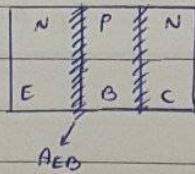 N P N
E B C
AEB